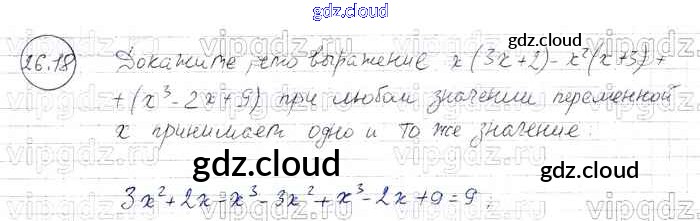 gdz.cloud
26.18 Докажите, что выражение x(3x+2)-x²(x+3)+
+(x³-2x+9) при любом значении переменной
x принимает одно и то же значение:
gdz.cloud gdz.cloud
3x²+2x-x³-3x²+x³-2x+9=9.